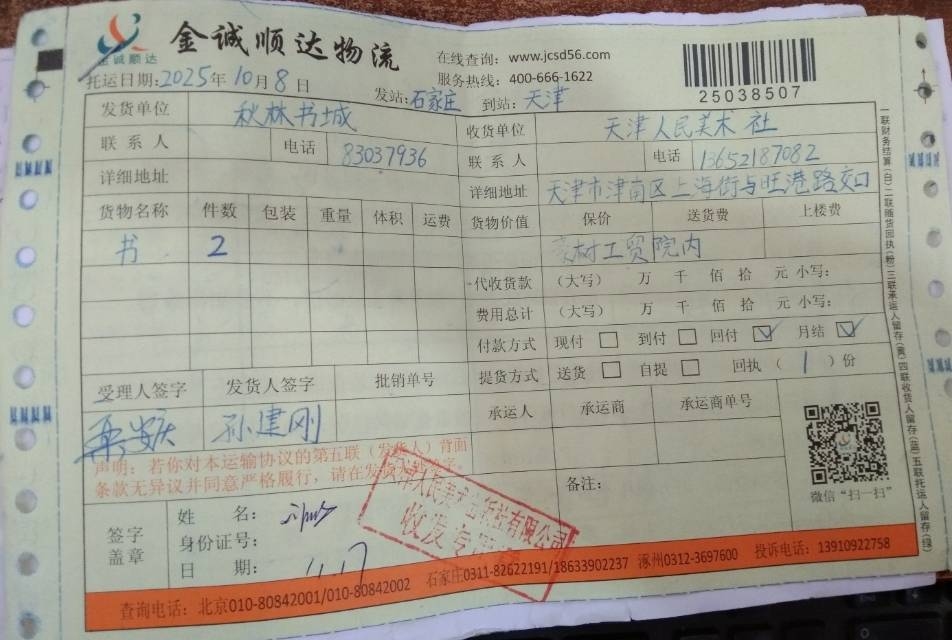 金诚顺达物流
金诚顺达
在线查询：www.jcsd56.com
服务热线：400-666-1622
25038507
托运日期：2025年10月8日
发站：石家庄 到站：天津
发货单位 秋林书城 收货单位 天津人民美术社
联系人 电话 83037936 联系人 电话 13652187082
详细地址 详细地址 天津市津南区上海街与旺港路交口
货物名称 件数 包装 重量 体积 运费 货物价值 保价 送货费 上楼费
书 2 材工贸院内
代收货款 （大写） 万 千 佰 拾 元 小写：
费用总计 （大写） 万 千 佰 拾 元 小写：
付款方式 现付 □ 到付 □ 回付 ☑ 月结 ☑
提货方式 送货 □ 自提 □ 回执（1）份
受理人签字 发货人签字 批销单号 承运人 承运商 承运商单号
孙建刚
声明：若你对本运输协议的第五联（发货人）背面
条款无异议并同意严格履行，请在发货
备注：
微信“扫一扫”
签字
盖章
姓 名：
身份证号：
日 期：
收发专用章
查询电话：北京010-80842001/010-80842002 石家庄0311-82622191/18633902237 涿州0312-3697600 投诉电话：13910922758
一联财务结算(白)二联随货回执(粉)三联承运人留存(黄)四联收货人留存(蓝)五联托运人留存(绿)